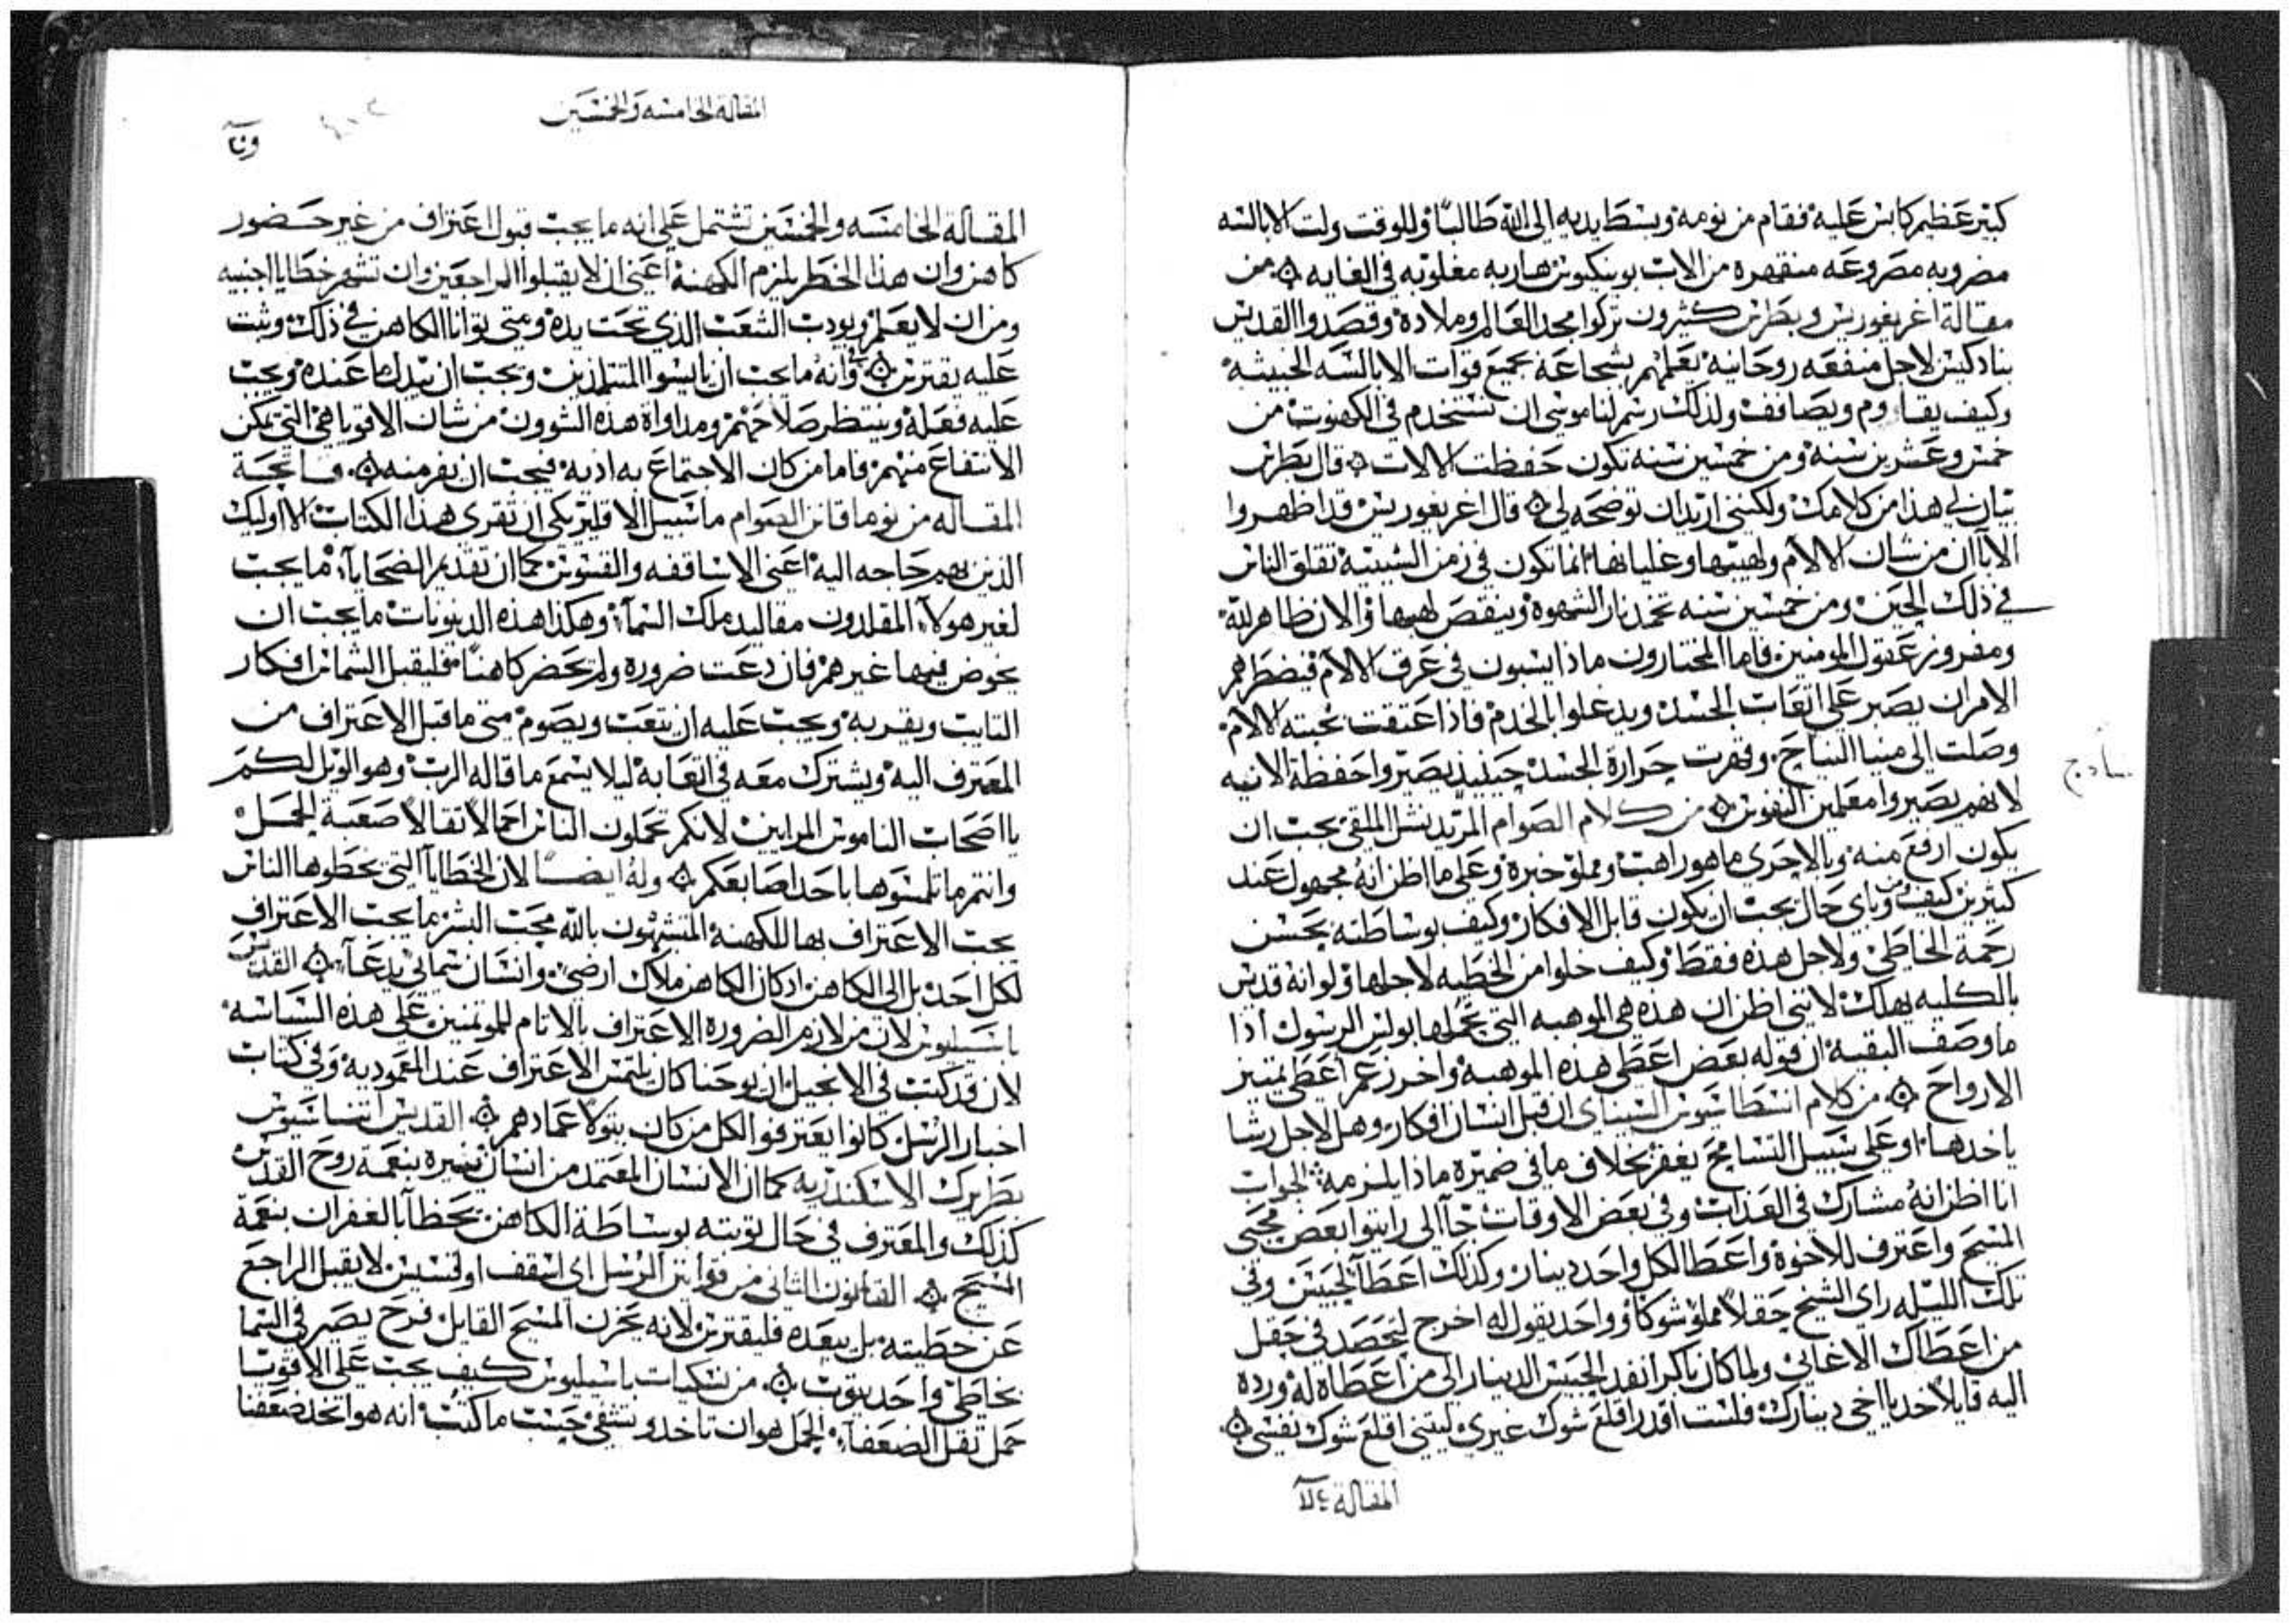 كبير عظيم كابس عليه فقام من نومه وبسط يديه الى الله طالبًا وللوقت ولت الابالسه
مضروبه مصروعه منقهره من الات بوينكيوس هاربه مغلوبه في الغايه ۞ من
مقالة اغريغوريس وبطرس كثيرون تركوا مجد العالم وملاده وقصدوا القديس
بنادكيس لاجل منفعه روحانيه يعلمهم بشجاعة بجميع قوات الابالسه الخبيثه
وكيف يقاوم ويصافف ولذلك رسم لنا موسى ان تستخدم في الكهنوت من
خمس وعشرين سنه ومن خمسين سنه تكون حفظت الالات ۞ قال بطرس
بيان لي هذا من كلامك ولكنني اريد ان توضحه لي ۞ قال اغريغوريس قد اظهروا
الابا ان من شان الالام ولهيبها وغليانها انما تكون في زمن الشبيبة تقلق الناس
في ذلك الحين ومن خمسين سنه تخمد نار الشهوة وينقص لهيبها والان ظاهر لله
ومفروز عقول المومنين فاما المختارون ماذا ايسبون في غرق الالام فيضطرهم
الامر ان يصبر على اتعاب الجسد ويدعلوا بالخدم فاذا عتقت محبته الالام
وصلت الى مينا النياح وقهرت حرارة الجسد حينيذ يصيروا حفظة الانيه
لانهم يصيروا معلمين النفوس ۞ من كلام الصوام المرتيد نشل الملقى يجب ان
يكون ارفع منه وبالاحرى ما هو راهب ومملو خبرة وعلى ما اظن انه مجهول عند
كثيرين كيف ومن وباي حال يجب ان يكون قابل الافكار وكيف بوساطته يحسن
رحمة الخاطي ولاجل هذه فقط وكيف خلوا من الخطيه لاجلها ولو انه قديس
بالكليه يهلك لانني اظن ان هذه هي الموهبه التي تحملها بولس الرسول اذا
ما وصف البقيه ان قوله بعض اعطى هذه الموهبه واخر زعم اعطى يميز
الارواح ۞ من كلام انسطاسيوس السيناي ان قبل انسان افكار وهل لاجل رشا
ياخدها او على سبيل التسامح يغفر بخلاف ما في ضميره ماذا يلزمه الجواب
انا اظن انه مشارك في العذاب وفي بعض الاوقات جا الى رايتوا بعض محبي
المسيح واعترف للاخوة واعطا الكل واحد دينار وكذلك اعطا الحبيس وفي
تلك الليله راى الشيخ حقلاً مملو شوكا وواحد يقول له اخرج لتحصد في حقل
من اعطاك الاغاني ولما كان باكرا انفد الحبيس الدينار الى من اعطاه له ورده
اليه قايلا خد يا اخي دينارك فلست اقدر اقلع شوك غيري ليتني اقلع شوك نفسي ۞
المقالة
ساذج
المقالة الخامسه والخمسين
المقالة الخامسه والخمسين تشتمل على انه ما يجب قبول اعتراف من غير حضور
كاهن وان هذا الخطر يلزم الكهنة اعني ان لا يقبلوا الراجعين وان تشهر خطايا اجنبيه
ومن ان لا يعلم ويودب الشعب الذي تحت يده ومتى توانا الكاهن في ذلك وثبت
عليه يقترس ۞ وانه ما يجب ان يايسوا المتتلمذين ويجب ان يبدل ما عنده ويجب
عليه فعله وينتظر صلاحهم ومداواة هذه الشوون من شان الاقويا هي التي يمكن
الانتفاع منهم فاما من كان الاجتماع به اذية فيجب ان يفر منه ۞
المقاله من نوما قانن الصوام ما سبيل الاقليريكي ان تقرى هذا الكتاب الا اوليك
الذين بهم حاجه اليه اعني الاساقفه والقسوس كما ان تقديم الضحايا ما يجب
لغير هولاء المقلدون مقاليد ملك السما وهكذا هذه الدينونات ما يجب ان
يخوض فيها غيرهم فان دعت ضروره ولم يحضر كاهنا فليقبل الشماس افكار
التايب ويقربه ويجب عليه ان يتعب ويصوم متى ما قبل الاعتراف من
المعترف اليه ويشترك معه في اتعابه ليلا يسمع ما قاله الرب وهو الويل لكم
يا اصحاب الناموس المرايين لانكم تحملون الناس احمالا ثقالا صعبة الحمل
وانتم ما تلمسوها باحد اصابعكم ۞ وله ايضا لان الخطايا التي يخطوها الناس
يجب الاعتراف بها للكهنة المتشبهون بالله محب البشر ما يجب الاعتراف
لكل احد بل الى الكاهن اذ كان الكاهن ملاك ارضي وانسان سمائي يدعا ۞ القديس
باسيليوس لان من لازم الضروره الاعتراف بالاثام للموتمنين على هذه السياسه
لان قد كتب في الانجيل ان يوحنا كان يلتمس الاعتراف عند المعموديه وفي كتاب
اخبار الرسل كانوا يعترفوا الكل من كان يتولا عمادهم ۞ القديس اتناسيوس
بطريرك الاسكندريه كما ان الانسان المعتمد من انسان تنيره بنعمة روح القدس
كذلك والمعترف في حال توبته بوساطة الكاهن يحظا بالغفران بنعمة
المسيح ۞ القانون الثاني من قوانين الرسل اي اسقف او قسيس لا يقبل الراجع
عن خطيته بل يبعده فليقترس لانه يحزن المسيح القايل فرح يصير في السما
بخاطي واحد يتوب ۞ من نسكيات باسيليوس كيف يجب على الاقويا
حمل ثقل الضعفا الحمل هو ان تاخد وتشفي حسب ما كتب انه هو اتخذ ضعفنا